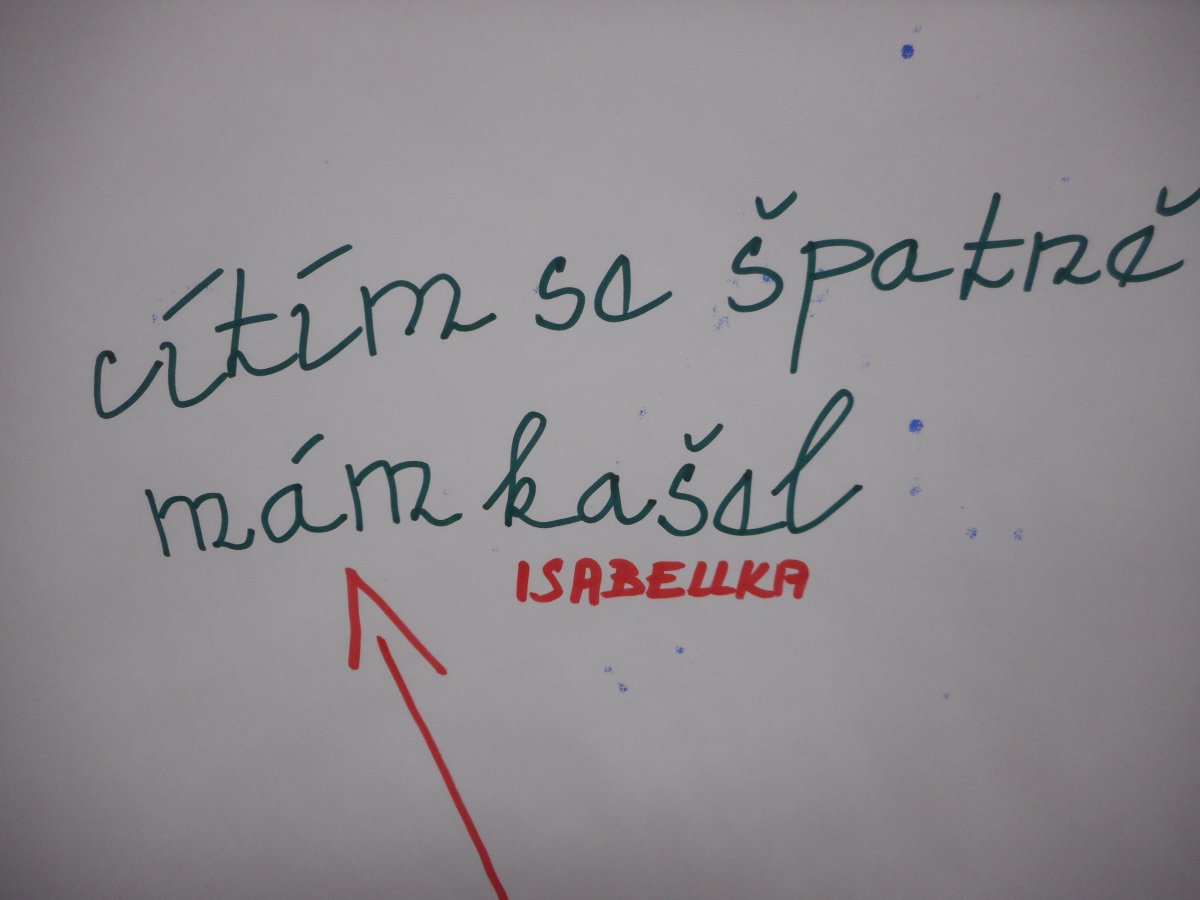 cítím se špatně
mám kašel
ISABELLKA